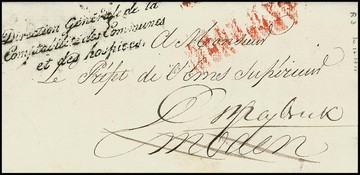 Direction Générale de la
Comptabilité des Communes
et des hospices.
A Monsieur
Le Préfet de l'Ems Supérieur
Osnabruck
Emden